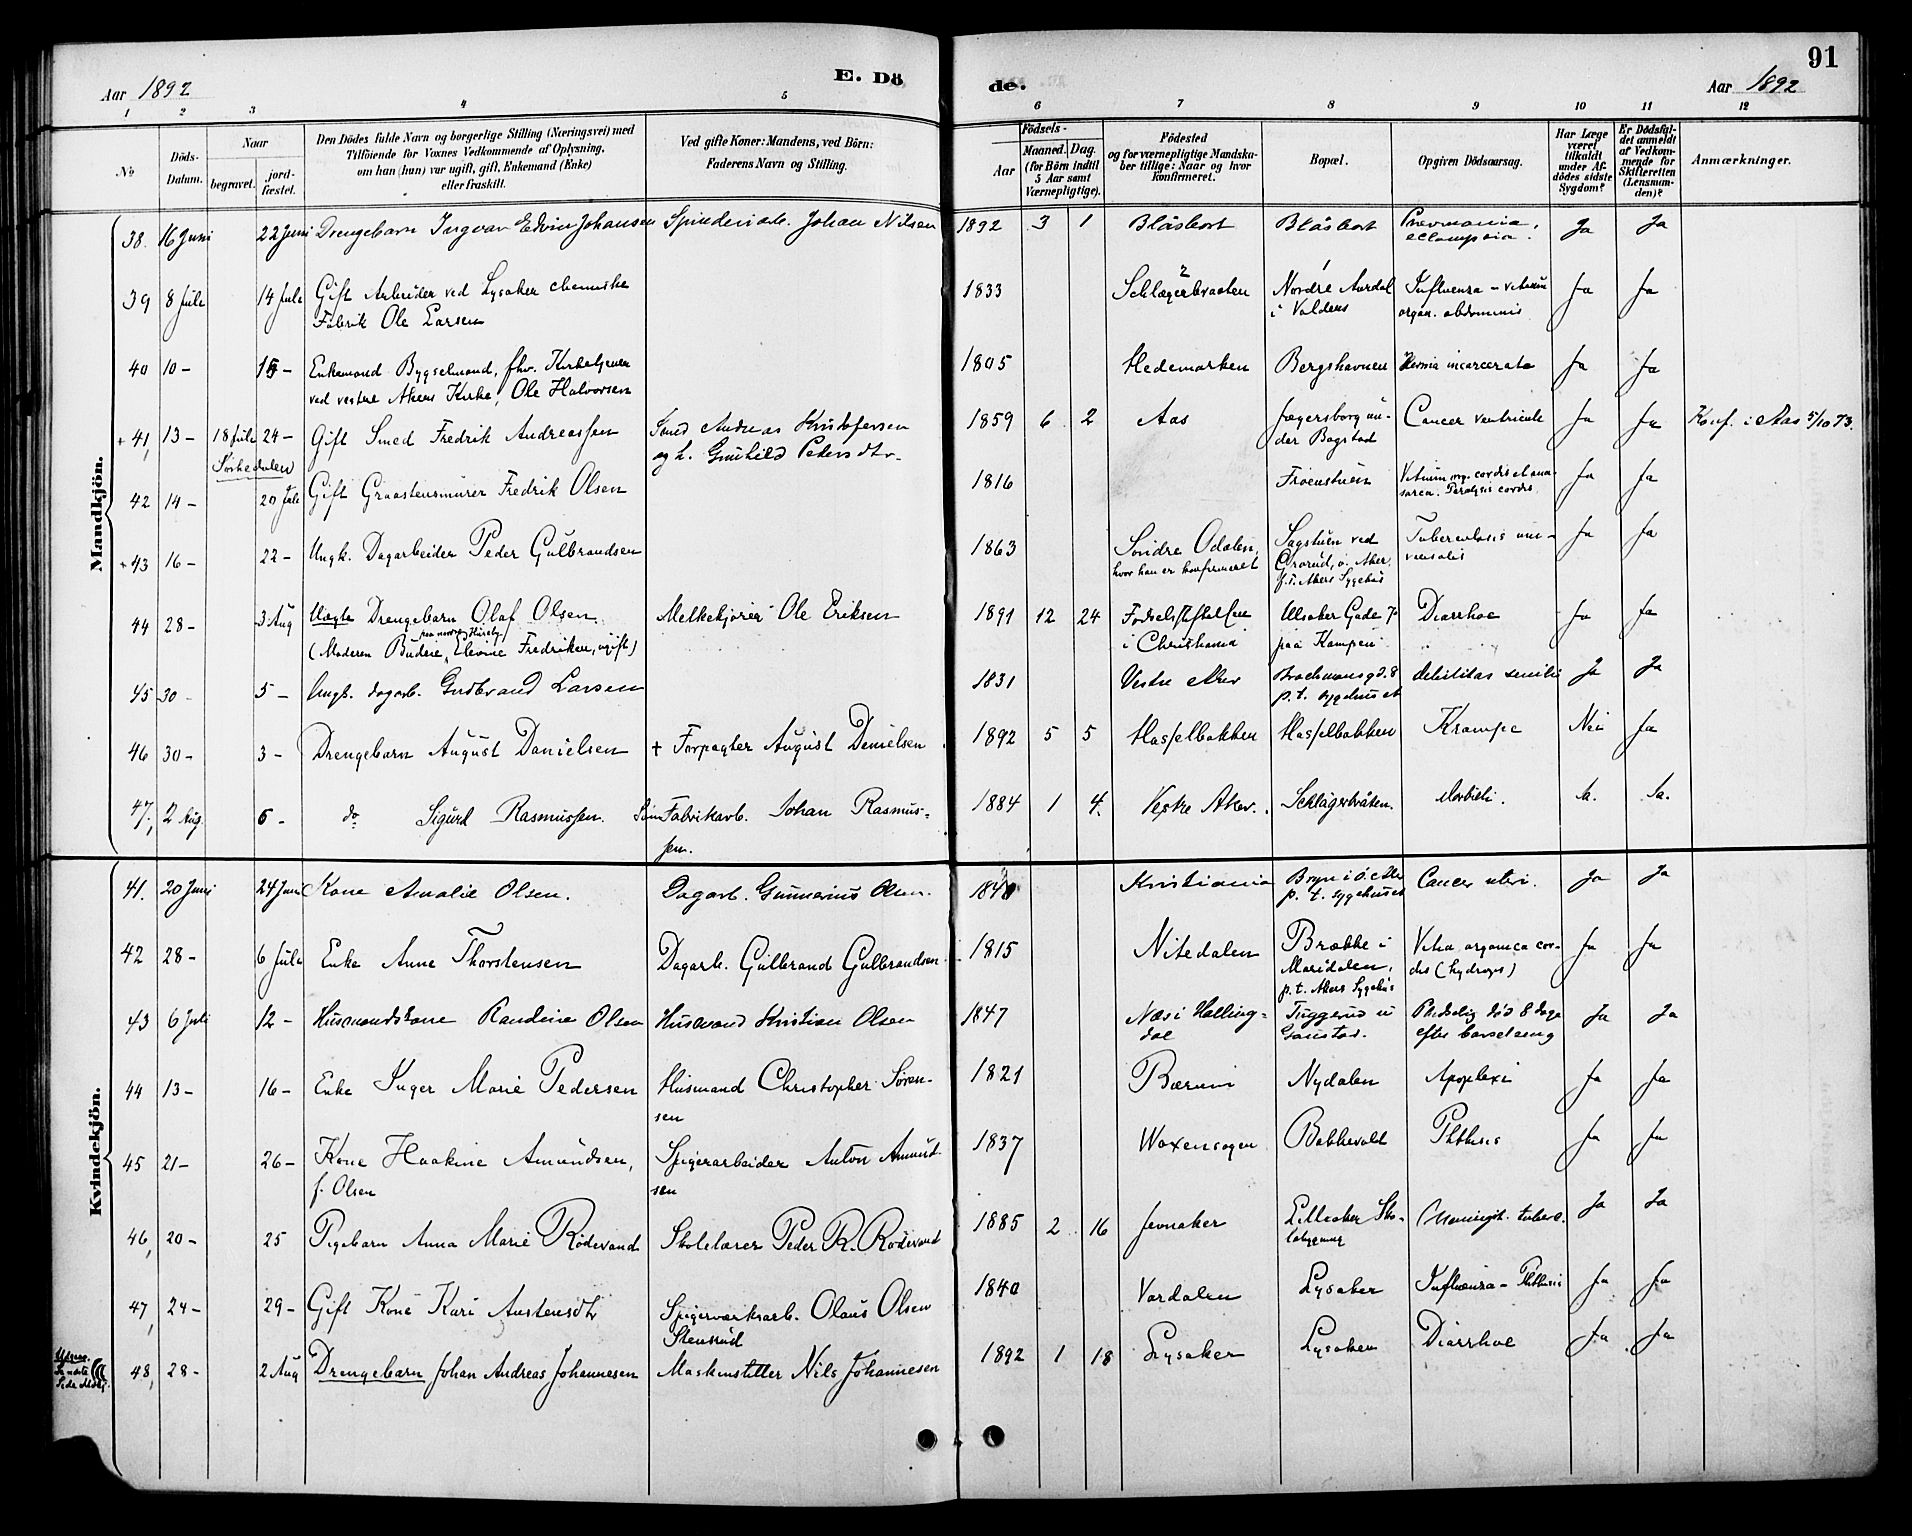 91
Aar 1892
E. Dö
de.
Aar 1892
1 2 3 4 5 6 7 8 9 10 11 12
№
Döds-
Datum.
Naar
begravet.
jord-
fæstet.
Den Dödes fulde Navn og borgerlige Stilling (Næringsvei) med
Tilföiende for Voxnes Vedkommende af Oplysning,
om han (hun) var ugift, gift, Enkemand (Enke)
eller fraskilt.
Ved gifte Koner: Mandens, ved Börn:
Faderens Navn og Stilling.
Födsels-
Aar
Maaned. Dag.
(for Börn indtil
5 Aar samt
Værnepligtige).
Födested
og for værnepligtige Mandska-
ber tillige: Naar og hvor
konfirmeret.
Bopæl.
Opgiven Dödsaarsag.
Har Læge
været
tilkaldt
under Af-
dödes sidste
Sygdom?
Er Dödsfal-
det anmeldt
af Vedkom-
mende for
Skifteretten
(Lensman-
den)?
Anmærkninger.
Mandkjön.
38. 16 Juni 22 Juni Drengebarn Ingvar Edvin Johansen Spinderiarb. Johan Nilsen 1892 3 1 Blåsbort Blåsbort Pnevmonia, Ja Ja
eclampsia.
39 8 Juli 14 Juli Gift Arbeider ved Lysaker chemiske 1833 Schlægerbraaten Nordre Aurdal Influenza - vitium Ja Ja
2 1
Fabrik Ole Larsen i Valders organ. abdominis
40 10 - 15 - Enkemand Bygselmand, fhv. Kirketjener 1805 Hedemarken Bergshavnen Hernia incarcerata Ja Ja
ved vestre Akers Kirke, Ole Halvorsen
+ 41, 13 - 18 Juli 24 - Gift Smed Fredrik Andreassen Smed Andreas Kristofersen 1859 6 2 Aas Jægersborg un- Cancer ventriculi Ja Ja Konf. i Aas 5/10 73.
Sörkedalen og h. Gunhild Pedersdtr. der Bogstad
42 14 - 20 Juli Gift Graastensmurer Fredrik Olsen 1816 Fröenstuen Vitium org. cordis et ana- Ja Ja
sarca. Paralysis cordis
+ 43 16 - 22 - Ungk. Dagarbeider Peder Gulbrandsen 1863 Söndre Odalen, Sagstuen ved Tuberculosis uni- Ja Ja
hvor han er konfirmeret Grorud, ö. Aker. versalis
p. t. Akers Sygehus
44 28 - 3 Aug Uægte Drengebarn Olaf Olsen Melkekjörer Ole Eriksen 1891 12 24 Födselsstiftelsen Ulsaker Gade 7 Diarrhoe Ja Ja
(Moderen Budeie Elevine Fredriksen, ugift) i Christiania paa Kampen
45 30 - 5 - Ungk. dagarb. Gudbrand Larsen 1831 Vestre Aker Brochmansgd. 8 debilitas senilis Ja Ja
p. t. sygehuset
46 30 - 3 - Drengebarn August Danielsen + Forpagter August Danielsen 1892 5 5 Hasselbakken Hasselbakken Krampe Nei Ja
47, 2 Aug. 6 - do Sigurd Rasmussen. Sön Fabrikarb. Johan Rasmus- 1884 1 4. Vestre Aker. Schlägerbråten. Morbilli. Ja. Ja.
sen.
Kvindekjön.
41. 20 Juni 24 Juni Kone Amalie Olsen. Dagarb. Gunnerius Olsen. 1840 Kristiania Bryn i ö. Aker Cancer uteri. Ja Ja
p. t. sygehuset
42 28 - 6 Juli Enke Anne Thorstensen Dagarb. Gulbrand Gulbrandsen 1815 Nitedalen Brække i Vitia organica cor- Ja Ja
Maridalen, dis (hydrops)
p. t. Akers Sygehus
43 6 Juli 12 - Husmandskone Randine Olsen Husmand Kristian Olsen 1847 Næs i Halling- Tuggerud u Pludselig död 8 dage Ja Ja
dal Gaustad. efter barselseng
44 13 - 16 - Enke Inger Marie Pedersen Husmand Christopher Sören- 1821 Bærum Nydalen Apoplexi Ja Ja
sen
45 21 - 26 - Kone Haakine Amundsen, Spigerarbeider Anton Amund- 1837 Woxensogen Bakkevold Phthisis Ja Ja
f. Olsen sen
46, 20 - 25 Pigebarn Anna Marie Rödevand Skolelærer Peder R. Rödevand 1885 2 16 Jevnaker Lilleaker Sko- Meningit. tuberc. Ja Ja
lebygning
47, 24 - 29 - Gift Kone Kari Austensdtr Spigerverksarb. Olaus Olsen 1840 Vardalen Lysaker Influenza - Phthisis Ja Ja
Stensrud
48, 28 - 2 Aug Drengebarn Johan Andreas Johannesen Maskinstiller Nils Johannesen 1892 1 18 Lysaker Lysaker Diarrhoe Ja Ja